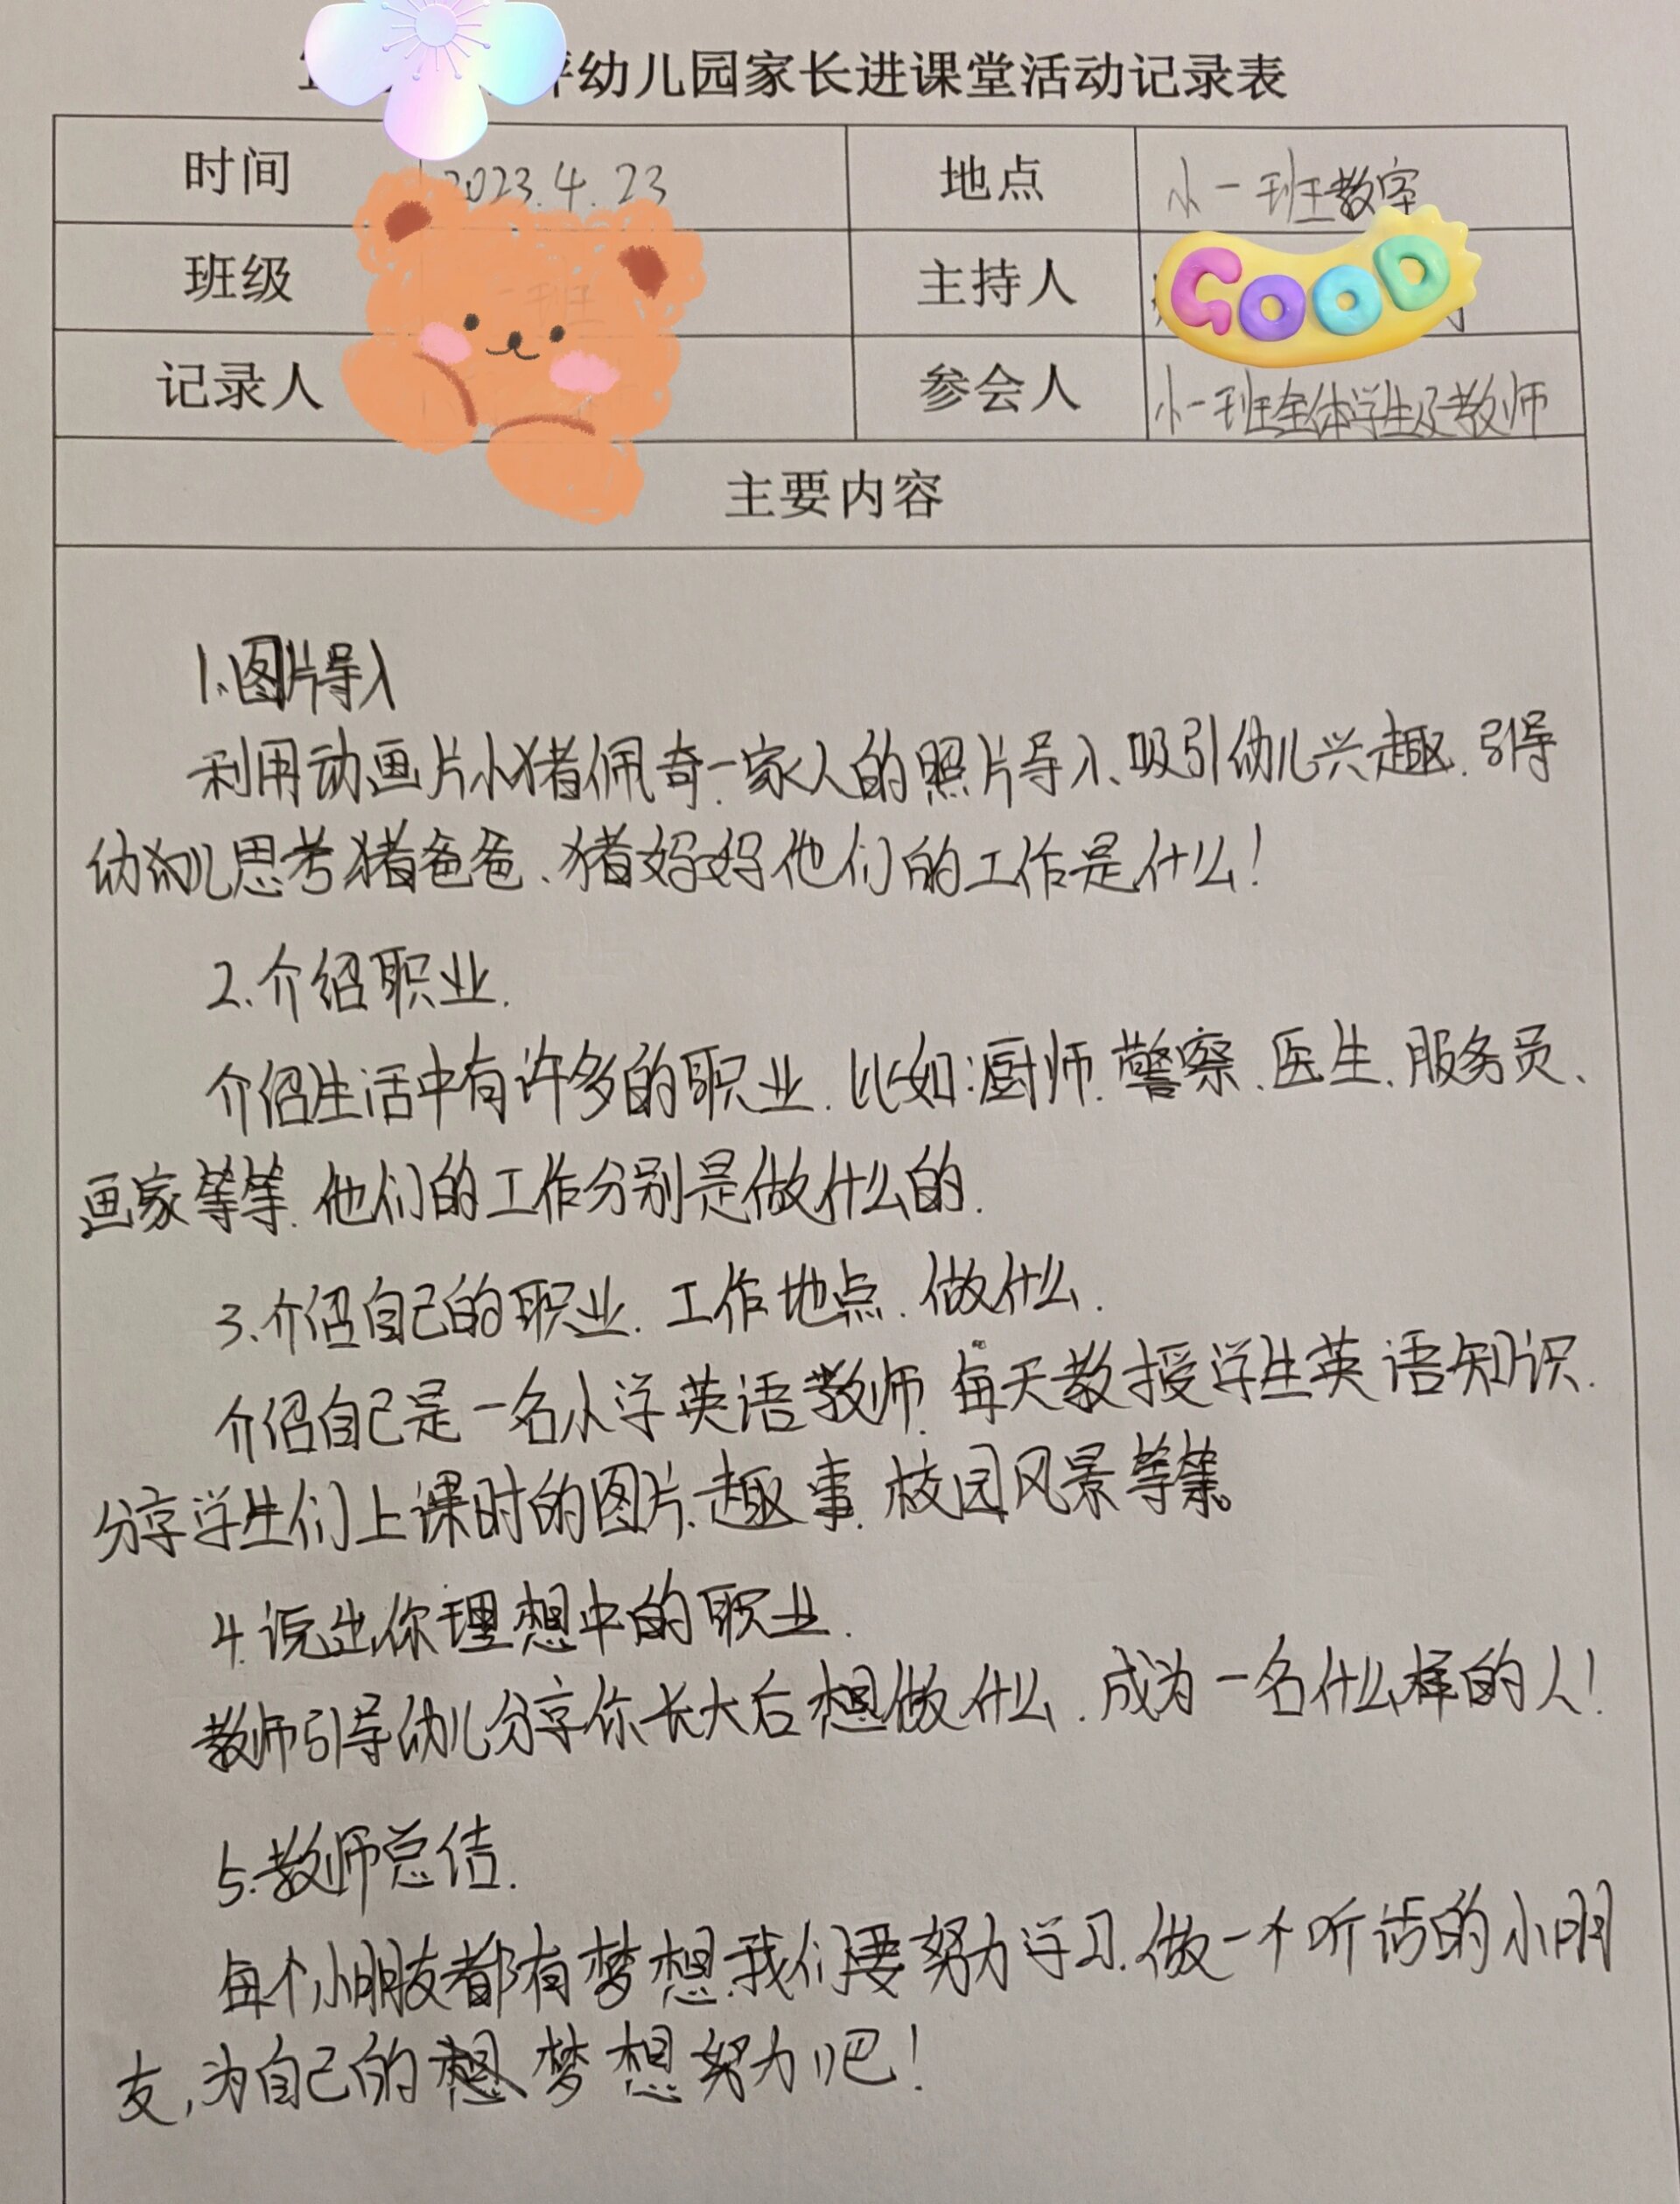 幼儿园家长进课堂活动记录表
时间 2023.4.23 地点 小一班教室
班级 一班 主持人 GOOD
记录人 参会人 小一班全体学生及教师
主要内容
1.图片导入
利用动画片小猪佩奇一家人的照片导入、吸引幼儿兴趣.引导
幼儿思考猪爸爸、猪妈妈他们的工作是什么!
2.介绍职业.
介绍生活中有许多的职业.比如:厨师.警察.医生.服务员、
画家等等.他们的工作分别是做什么的.
3.介绍自己的职业.工作地点.做什么.
介绍自己是一名小学英语教师.每天教授学生英语知识.
分享学生们上课时的图片.趣事.校园风景等等。
4.说出你理想中的职业.
教师引导幼儿分享你长大后想做什么.成为一名什么样的人!
5.教师总结.
每个小朋友都有梦想.我们要努力学习.做一个听话的小朋
友,为自己的梦想努力吧!